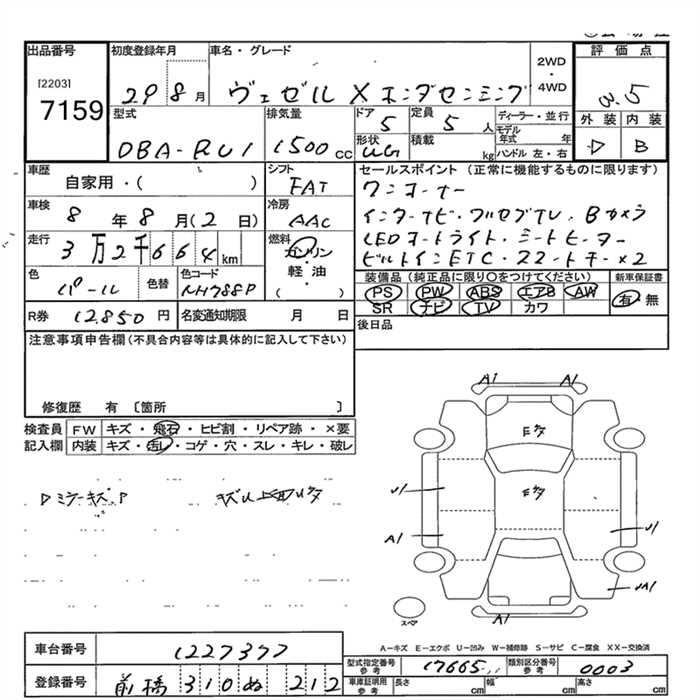 出品番号 初度登録年月 車名・グレード 2WD・4WD 評価点
[2203] 7159 29 8月 ヴェゼル X ホンダセンシング 3.5
型式 排気量 ドア 定員 ディーラー・並行 外装 内装
DBA-RU1 1500cc 5 5人 モデル年式 年 D B
形状 積載 kg ハンドル 左・右
車歴 自家用・( ) シフト FAT セールスポイント (正常に機能するものに限ります)
ワンオーナー
車検 8年8月(2日) 冷房 AAC インターナビ・フルセグTV、Bカメラ
走行 3万2千664km 燃料 ガソリン・軽油( ) LEDオートライト・シートヒーター
ビルトインETC・スマートキー×2
色 パール 色替 色コード NH788P 装備品(純正品に限り○をつけてください) 新車保証書
PS PW ABS エアB AW 有 無
SR ナビ TV カワ
R券 12,850円 名変通知期限 月 日 後日品
注意事項申告欄(不具合内容等は具体的に記入して下さい)
修復歴 有〔箇所 〕
検査員記入欄 FW キズ・飛石・ヒビ割・リペア跡・×要
内装 キズ・汚レ・コゲ・穴・スレ・キレ・破レ
A1 A1
Eクタ
Eクタ
U1
A1 U1
UA1
A1
スペア
A-キズ E-エクボ U-凹み W-補修跡 S-サビ C-腐食 XX-交換済
車台番号 1227377
型式指定番号 参考 17665 類別区分番号 参考 0003
登録番号 前橋 310 ぬ 212
車庫証明用 参考 長さ cm 幅 cm 高さ cm